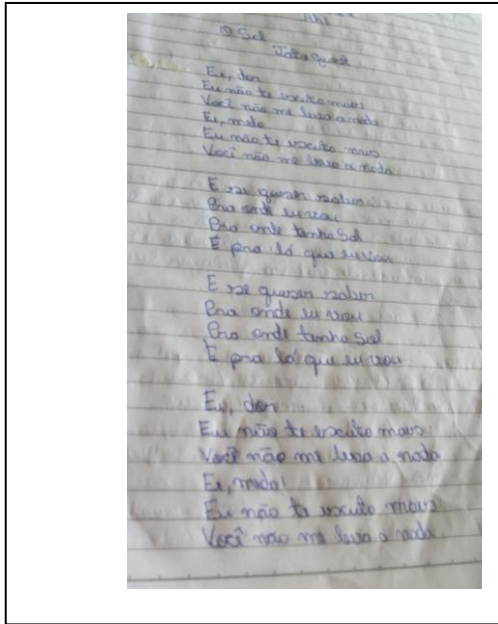 O Sol
Jota Quest
Ei, dor
Eu não te escuto mais
Você não me leva a nada
Ei, medo
Eu não te escuto mais
Você não me leva a nada
E se quiser saber
Pra onde eu vou
Pra onde tenha Sol
É pra lá que eu vou
E se quiser saber
Pra onde eu vou
Pra onde tenha Sol
É pra lá que eu vou
Ei, dor
Eu não te escuto mais
Você não me leva a nada
Ei, medo!
Eu não te escuto mais
Você não me leva a nada